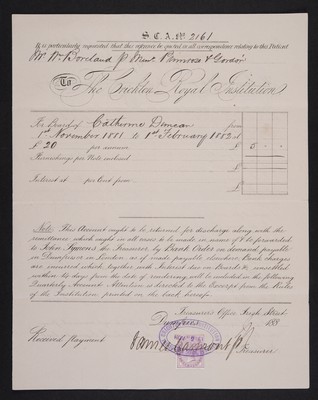 S.C.A. No 2161
It is particularly requested that this reference be quoted in all correspondence relating to this Patient
Mr Wm Boreland p Messrs Primrose & Gordon
To The Crichton Royal Institution
For Board of Catherine Duncan from
1st November 1881 to 1st February 1882 at
£ 20 per annum £ 5 - -
Per exchange per Note enclosed
£
Interest at per Cent from
£
Note This Account ought to be returned for discharge along with the
remittance which ought in all cases to be made in names & be forwarded
to John Symons the Treasurer by Bank Order on demand payable
in Dumfries or London as if made payable elsewhere Bank charges
are incurred which together with Interest due on Boards &c, unsettled
within 30 days from the date of rendering will be included in the following
Quarterly Account Attention is directed to the Excerpt from the Rules
of the Institution printed on the back hereof
Treasurer's Office Irish Street
Dumfries 188
Received Payment
Treasurer